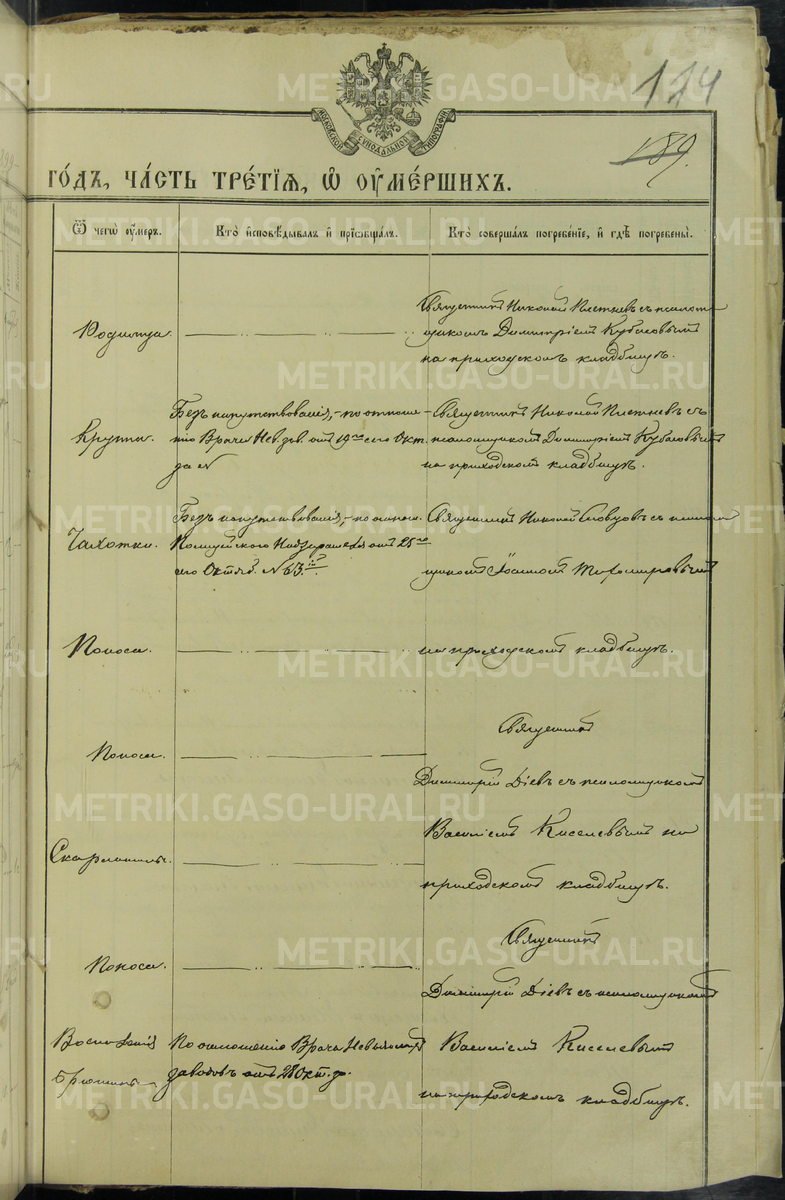 114
189.
МОСКОВСКОЙ СѴНОДАЛЬНОЙ ТИПОГРАФІИ
ГО́ДЪ, ЧА́СТЬ ТРЕ́ТІѦ, Ѡ ОУ҆МЕ́РШИХЪ.
Ѿ чегѡ̀ оу҆́меръ.
Кто̀ и҆сповѣ́дывалъ и҆ прїѡбща́лъ.
Кто̀ соверша́лъ погребе́нїе, и҆ гдѣ̀ погребены̀.
Родимца.
Священникъ Николай Плетневъ съ псалом
щикомъ Димитріемъ Кубасовымъ
на приходскомъ кладбищѣ.
Крупа.
Безъ напутствованія, - по отноше-
нію Врача Нев. зав. отъ 19го сего Окт.
за №
Священникъ Николай Плетневъ съ
псаломщикомъ Димитріемъ Кубасовымъ
на приходскомъ кладбищѣ.
Чахотки.
Безъ напутствованія, - по отнош.
Полицейского Надзирателя отъ 25го
сего Октяб. №
Священникъ Николай Словцовъ съ псалом
щикомъ Іоанномъ Тихомировымъ
Поноса.
на приходскомъ кладбищѣ.
Поноса.
Священникъ
Димитрій Діевъ съ псаломщикомъ
Скарлатины.
Василіемъ Киселевымъ на
приходскомъ кладбищѣ.
Поноса.
Священникъ
Димитрій Діевъ съ псаломщикомъ
Воспаленія
брюшины
По отношенію Врача Невьянскихъ
заводовъ отъ 28 Окт.
Василіемъ Киселевымъ
на приходскомъ кладбищѣ.
METRIKI.GASO-URAL.RU